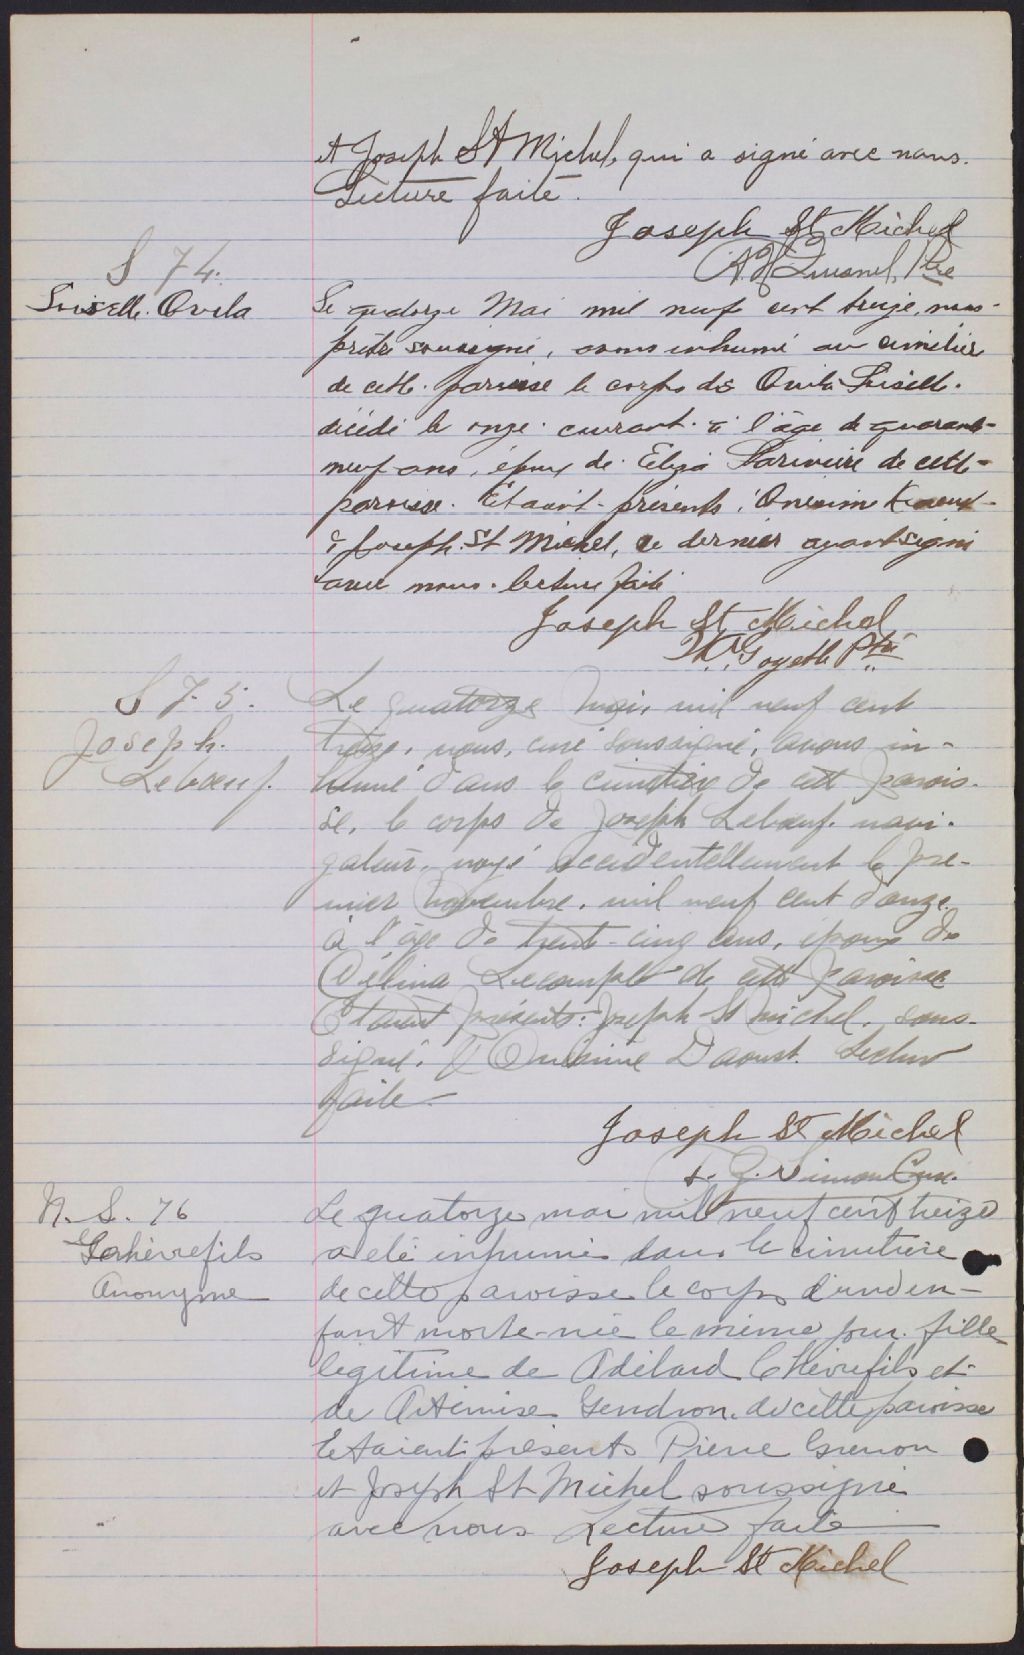 et Joseph St Michel, qui a signé avec nous.
Lecture faite.
Joseph St Michel
Ptre
S 74.
Loiselle. Ovila
Le quatorze Mai mil neuf cent treize, nous
prêtre soussigné, avons inhumé au cimetière
de cette paroisse le corps de Ovila Loiselle
décédé le onze courant à l'âge de quarante
neuf ans, époux de Eliza Larivière de cette
paroisse. Étaient présents, Onésime Daoust
& Joseph St Michel, ce dernier ayant signé
avec nous. lecture faite
Joseph St Michel
Goyette Ptre
S 75.
Joseph.
Leboeuf.
Le quatorze Mai, mil neuf cent
treize, nous, curé soussigné, avons in-
humé dans le cimetière de cette parois-
se, le corps de Joseph Leboeuf navi-
gateur, noyé accidentellement le pre-
mier novembre, mil neuf cent douze
à l'âge de trente-cinq ans, époux de
Délina Lecompte de cette paroisse
Étaient présents: Joseph St Michel, sous-
signé, & Onésime Daoust. Lecture
faite
Joseph St Michel
Simon Curé.
N. S. 76
Gchèvrefils
Anonyme
Le quatorze mai mil neuf cent treize
a été inhumé dans le cimetière
de cette paroisse le corps d'un en-
fant morte-née le même jour. fille
légitime de Adélard Chèvrefils et
de Artémise Gendron. de cette paroisse
Etaient présents Pierre Grenon
et Joseph St Michel soussigné
avec nous Lecture faite
Joseph St Michel